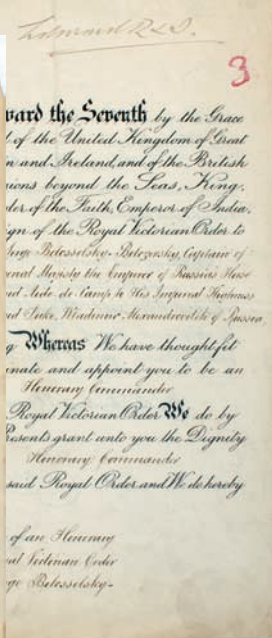 Edward R & I.
3
ward the Seventh by the Grace
of the United Kingdom of Great
n and Ireland, and of the British
ions beyond the Seas, King,
der of the Faith, Emperor of India,
ign of the Royal Victorian Order to
Serge Belosselsky-Belozersky, Captain of
erial Majesty the Emperor of Russia's Horse
and Aide-de-Camp to His Imperial Highness
nd Duke Wladimir Alexandrovitch of Russia
g Whereas We have thought fit
inate and appoint you to be an
Honorary Commander
Royal Victorian Order We do by
Presents grant unto you the Dignity
Honorary Commander
said Royal Order and We do hereby
of an Honorary
yal Victorian Order
ge Belosselsky-